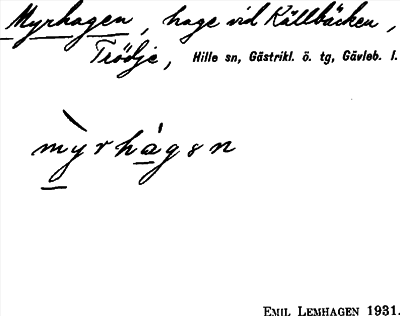 Myrhagen, hage vid Källbäcken,
Trödje, Hille sn, Gästrikl. ö. tg, Gävleb. l.
mỳrhágən
EMIL LEMHAGEN 1931.